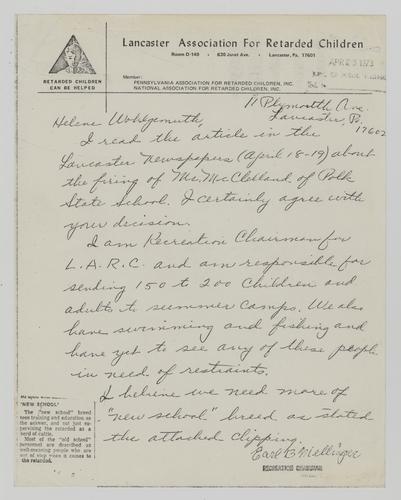 RETARDED CHILDREN
CAN BE HELPED
Lancaster Association For Retarded Children
Room D-140 • 630 Janet Ave. • Lancaster, Pa. 17601
Member:
PENNSYLVANIA ASSOCIATION FOR RETARDED CHILDREN, INC.
NATIONAL ASSOCIATION FOR RETARDED CHILDREN, INC.
APR 23 1973
11 Plymouth Ave.
Lancaster, Pa.
17602
Helene Wohlgemuth,
I read the article in the
Lancaster Newspapers (April 18-19) about
the firing of Mr. McClelland of Polk
State School. I certainly agree with
your decision.
I am Recreation Chairman for
L.A.R.C. and am responsible for
sending 150 to 200 Children and
adults to summer camps. We also
have swimming and fishing and
have yet to see any of these people
in need of restraints.
I believe we need more of
"new school" breed as stated
the attached clipping.
Earl B Mellinger
RECREATION CHAIRMAN
'NEW SCHOOL'
The "new school" breed
sees training and education as
the answer, and not just su-
pervising the retarded as a
herd of cattle.
Most of the "old school"
personnel are described as
well-meaning people who are
out of step when it comes to
the retarded.